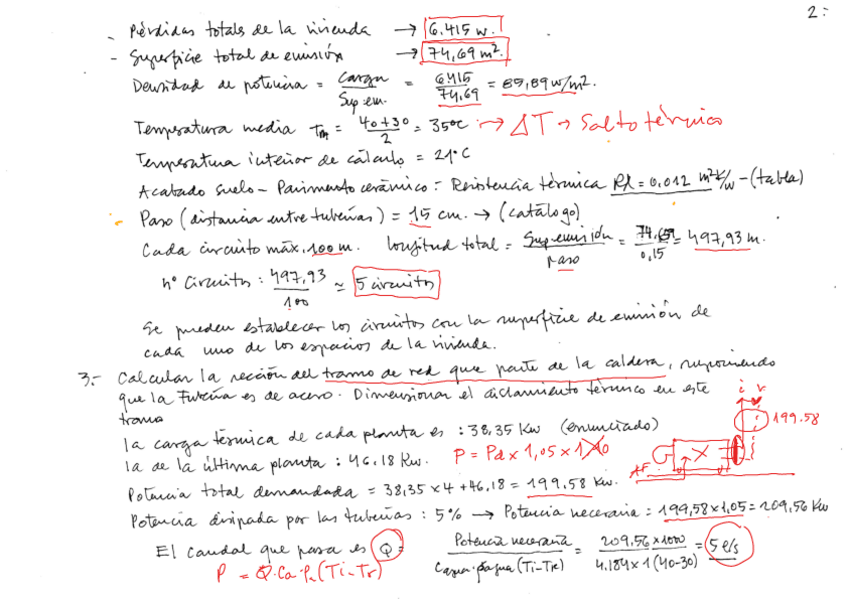 2:
- Pérdidas totals de la vivienda → 6.415 w.
- Superficie total de emisión → 74,69 m².
Densidad de potencia = Carga / Sup em. = 6415 / 74,69 = 85,89 w/m².
Temperatura media Tm = 40+30 / 2 = 35ºC → ΔT → Salto térmico
Temperatura interior de cálculo = 21ºC
Acabado suelo - Pavimento cerámico = Resistencia térmica Rλ = 0,012 m²K/w - (tabla)
- Paso (distancia entre tuberías) = 15 cm. → (catálogo)
Cada circuito máx. 100 m. longitud total = Sup emisión / paso = 74,69 / 0,15 = 497,93 m.
nº Circuitos : 497,93 / 100 ≃ 5 circuitos
Se pueden establecer los circuitos con la superficie de emisión de
cada uno de los espacios de la vivienda.
3.- Calcular la sección del tramo de red que parte de la caldera, suponiendo
que la tubería es de acero. Dimensionar el aislamiento térmico en este
tramo
i v
199.58
la carga térmica de cada planta es : 38,35 Kw (enunciado)
la de la última planta : 46,18 Kw. P = Pd x 1,05 x 1,10
AF
Potencia total demandada = 38,35 x 4 + 46,18 = 199,58 Kw.
Potencia disipada por las tuberías : 5% → Potencia necesaria = 199,58 x 1,05 = 209,56 Kw
El caudal que pasa es Q = Potencia necesaria / Cagua·ρagua (Ti-Tr) = 209,56 x 1000 / 4.184 x 1 (40-30) = 5 l/s
P = Q·Ca·ρ (Ti-Tr)